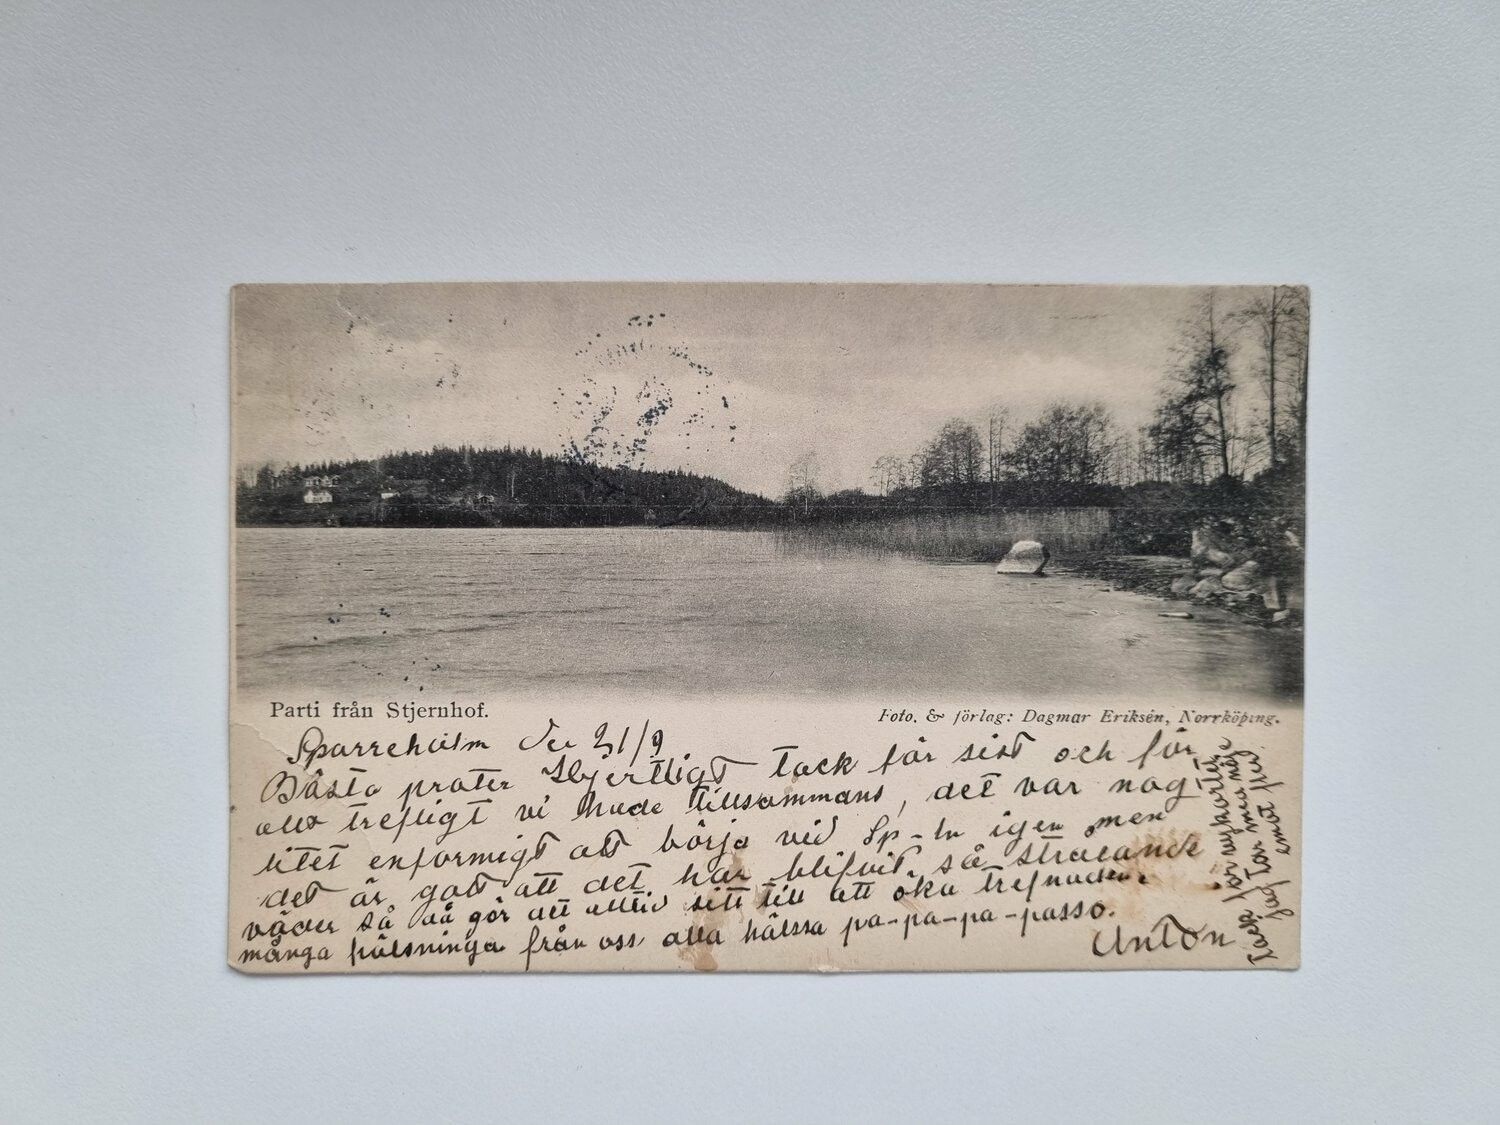 Parti från Stjernhof.
Foto. & förlag: Dagmar Eriksén, Norrköping.
Sparreholm den 21/9
Bästa Hjertligt tack för sist och för
allt trefligt vi hade tillsammans, det var nog
litet enformigt att börja vid Sp-lm igen men
det är godt att det har blifvit så strålande
väder så då gör det alltid sitt till att öka trefnaden.
många hälsningar från oss alla hälsa pa-pa-pa-passo.
Anton
Tack för vykortet
jag tar med nöje
emot fler